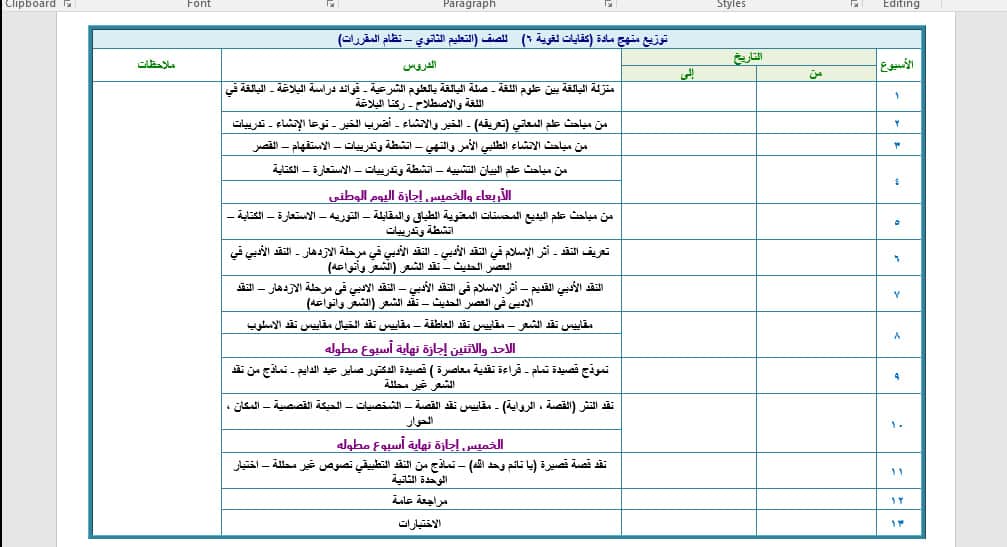 Clipboard
Font
Paragraph
Styles
Editing
توزيع منهج مادة (كفايات لغوية ٦) للصف (التعليم الثانوي – نظام المقررات)
الأسبوع
التاريخ
الدروس
ملاحظات
من
إلى
١
منزلة البالغة بين علوم اللغة - صلة البالغة بالعلوم الشرعية - فوائد دراسة البلاغة - البالغة في
اللغة والاصطلاح - ركنا البلاغة
٢
من مباحث علم المعاني (تعريفه) - الخبر والانشاء - أضرب الخبر - نوعا الإنشاء - تدريبات
٣
من مباحث الانشاء الطلبي الأمر والنهي – انشطة وتدريبات – الاستفهام – القصر
٤
من مباحث علم البيان التشبيه – انشطة وتدريبات – الاستعارة – الكناية
الأربعاء والخميس إجازة اليوم الوطني
٥
من مباحث علم البديع المحسنات المعنوية الطباق والمقابلة – التوريه – الاستعارة – الكناية –
انشطة وتدريبات
٦
تعريف النقد - أثر الإسلام في النقد الأدبي - النقد الأدبي في مرحلة الازدهار - النقد الأدبي في
العصر الحديث – نقد الشعر (الشعر وأنواعه)
٧
النقد الأدبي القديم – أثر الاسلام فى النقد الأدبي – النقد الادبى فى مرحلة الازدهار – النقد
الادبى فى العصر الحديث – نقد الشعر (الشعر وانواعه)
٨
مقاييس نقد الشعر – مقاييس نقد العاطفة – مقاييس نقد الخيال مقاييس نقد الاسلوب
الاحد والاثنين إجازة نهاية أسبوع مطوله
٩
نموذج قصيدة تمام - قراءة نقدية معاصرة ) قصيدة الدكتور صابر عبد الدايم - نماذج من نقد
الشعر غير محللة
١٠
نقد النثر (القصة ، الرواية) - مقاييس نقد القصة – الشخصيات – الحبكة القصصية – المكان ،
الحوار
الخميس إجازة نهاية أسبوع مطوله
١١
نقد قصة قصيرة (يا نائم وحد الله) – نماذج من النقد التطبيقي نصوص غير محللة – اختبار
الوحدة الثانية
١٢
مراجعة عامة
١٣
الاختبارات